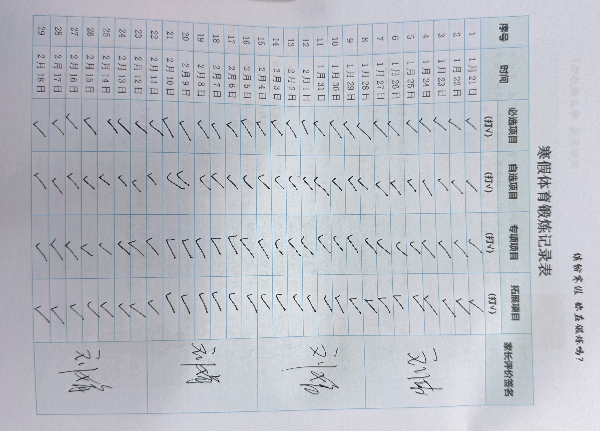 缤纷寒假 你在锻炼吗?
寒假体育锻炼记录表
序号 时间 必选项目(打√) 自选项目(打√) 专项项目(打√) 拓展项目(打√) 家长评价签名
1 1月21日 √ √ √ √
2 1月22日 √ √ √ √
3 1月23日 √ √ √ √
4 1月24日 √ √ √ √
5 1月25日 √ √ √ √
6 1月26日 √ √ √ √
7 1月27日 √ √ √ √
8 1月28日 √ √ √ √
9 1月29日 √ √ √ √
10 1月30日 √ √ √ √
11 1月31日 √ √ √ √
12 2月1日 √ √ √ √
13 2月2日 √ √ √ √
14 2月3日 √ √ √ √
15 2月4日 √ √ √ √
16 2月5日 √ √ √ √
17 2月6日 √ √ √ √
18 2月7日 √ √ √ √
19 2月8日 √ √ √ √
20 2月9日 √ √ √ √
21 2月10日 √ √ √ √
22 2月11日 √ √ √ √
23 2月12日 √ √ √ √
24 2月13日 √ √ √ √
25 2月14日 √ √ √ √
26 2月15日 √ √ √ √
27 2月16日 √ √ √ √
28 2月17日 √ √ √ √
29 2月18日 √ √ √ √